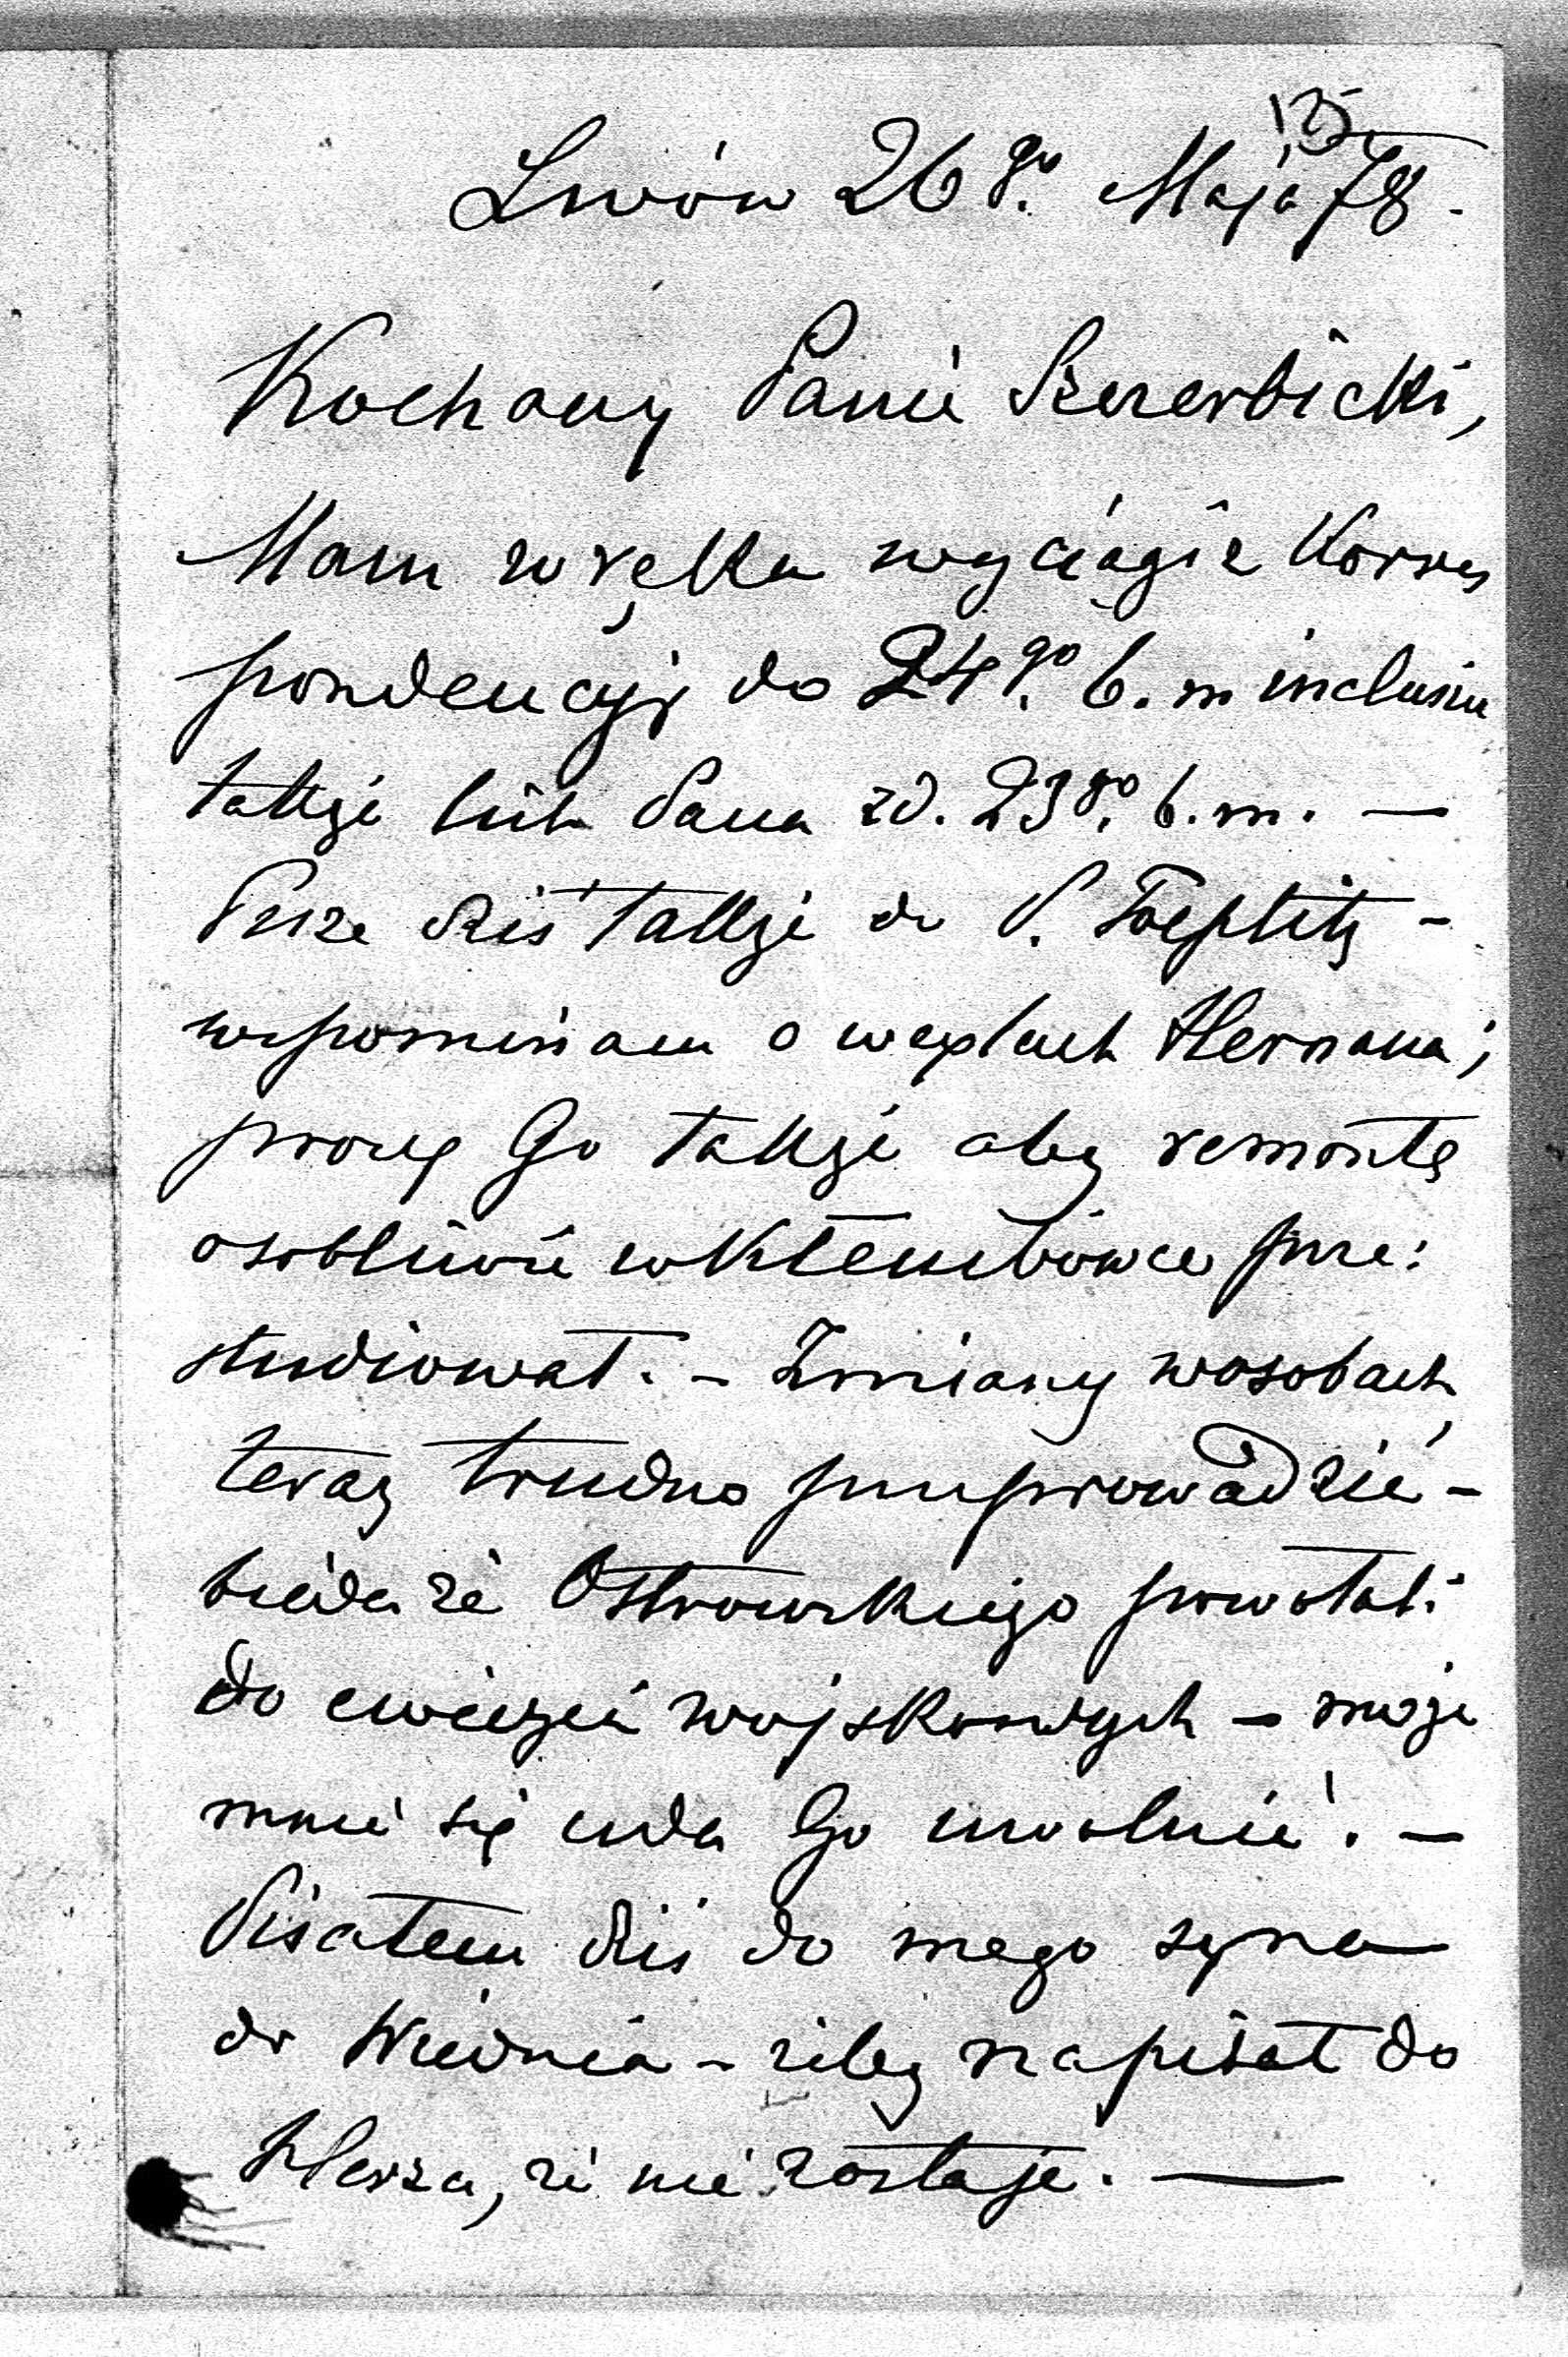 125
Lwów 26go Maja 78.
Kochany Panie Szczerbicki,
Mam w ręku wyciągi z Korres
pondencyj do 24go b. m inclusiv
także list Pana zd. 23go b. m. —
Pisze dziś także do P. Toeplitz -
wspominam o wexlach Hermana;
proszę Go także aby remontę
osobliwie w Kłembówce prze:
studiował. - Zmiany w osobach
teraz trudno przeprowadzić -
bieda że Ostrowskiego powołali
do ćwiczeń wojskowych - może
mnie się uda Go uwolnić. -
Pisałem dziś do mego syna
do Wiednia - żeby napisał do
że nie zostaje. —